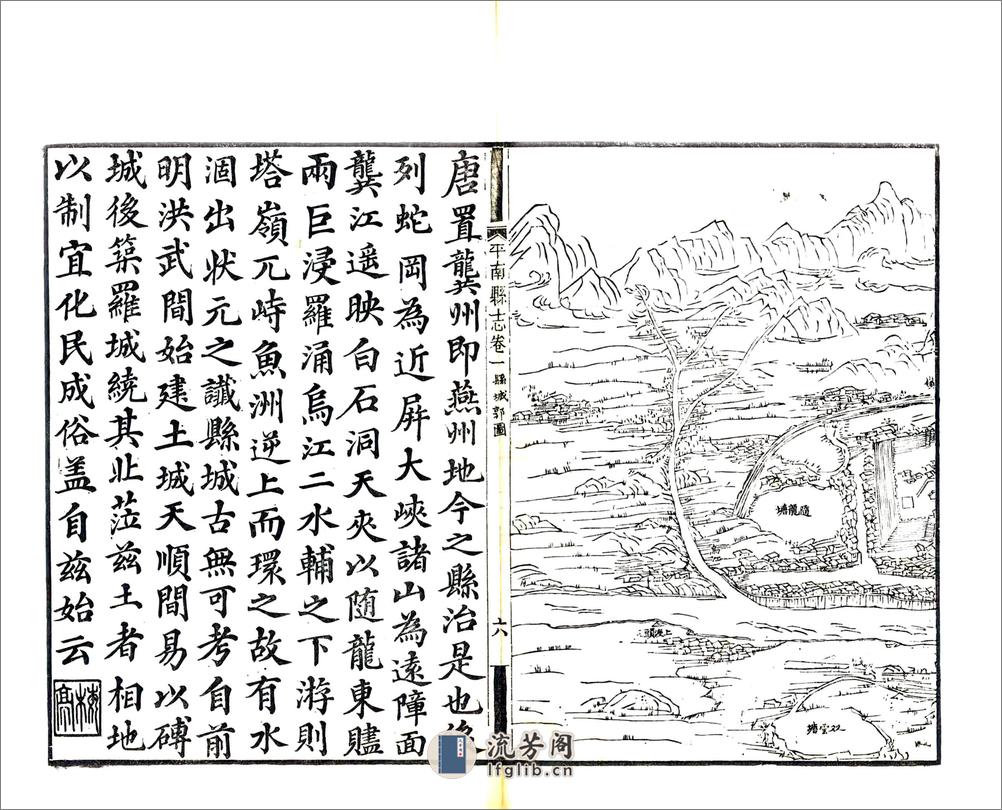 隨龍塘
平南縣志卷一
縣城郭圖
六
唐置龔州即燕州地今之縣治是也後
列蛇岡為近屛大峽諸山為遠障面
龔江遥映白石洞天夾以隨龍東𡒄
兩巨浸羅涌烏江二水輔之下游則
塔嶺兀峙魚洲逆上而環之故有水
涸出狀元之讖縣城古無可考自前
明洪武間始建土城天順間易以磚
城後築羅城繞其北蒞兹土者相地
以制宜化民成俗盖自兹始云
流芳阁
lfglib.cn